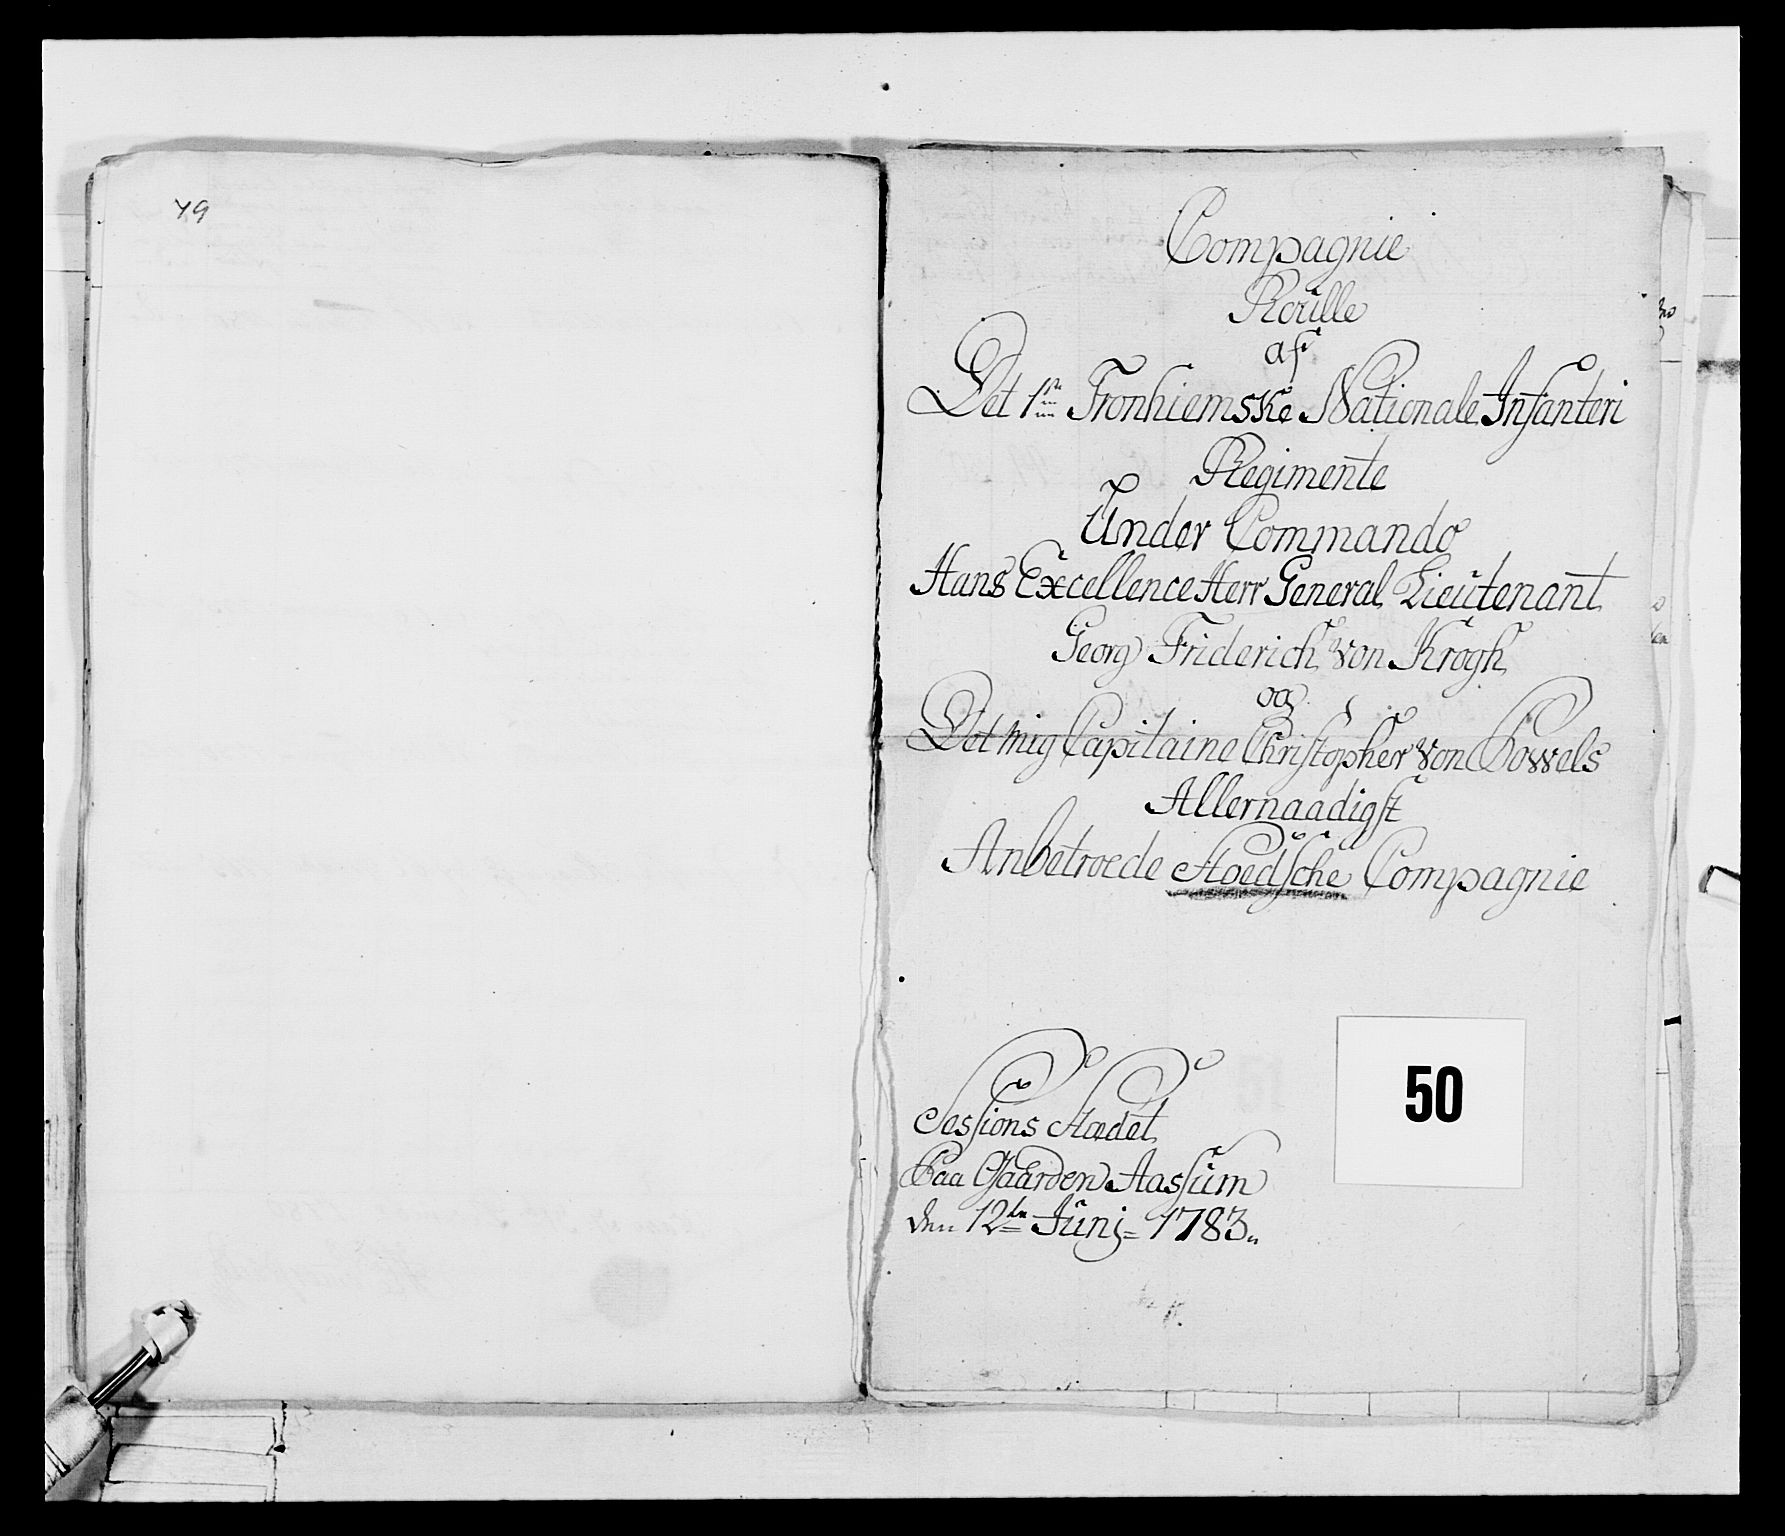 49
Compagnie
Roulle
af
Det 1ste Tronhiemske Nationale Infanteri
Regimente
Under Commando
Hans Excellence Herr General Lieutenant
Georg Friderich von Krogh
og
Det mig Capitaine Christopher von Cowels
Allernaadigst
Anbetroede Stoedsche Compagnie
Sessions Stædet
Paa Gaarden Aassum
den 12te Junj 1783
50